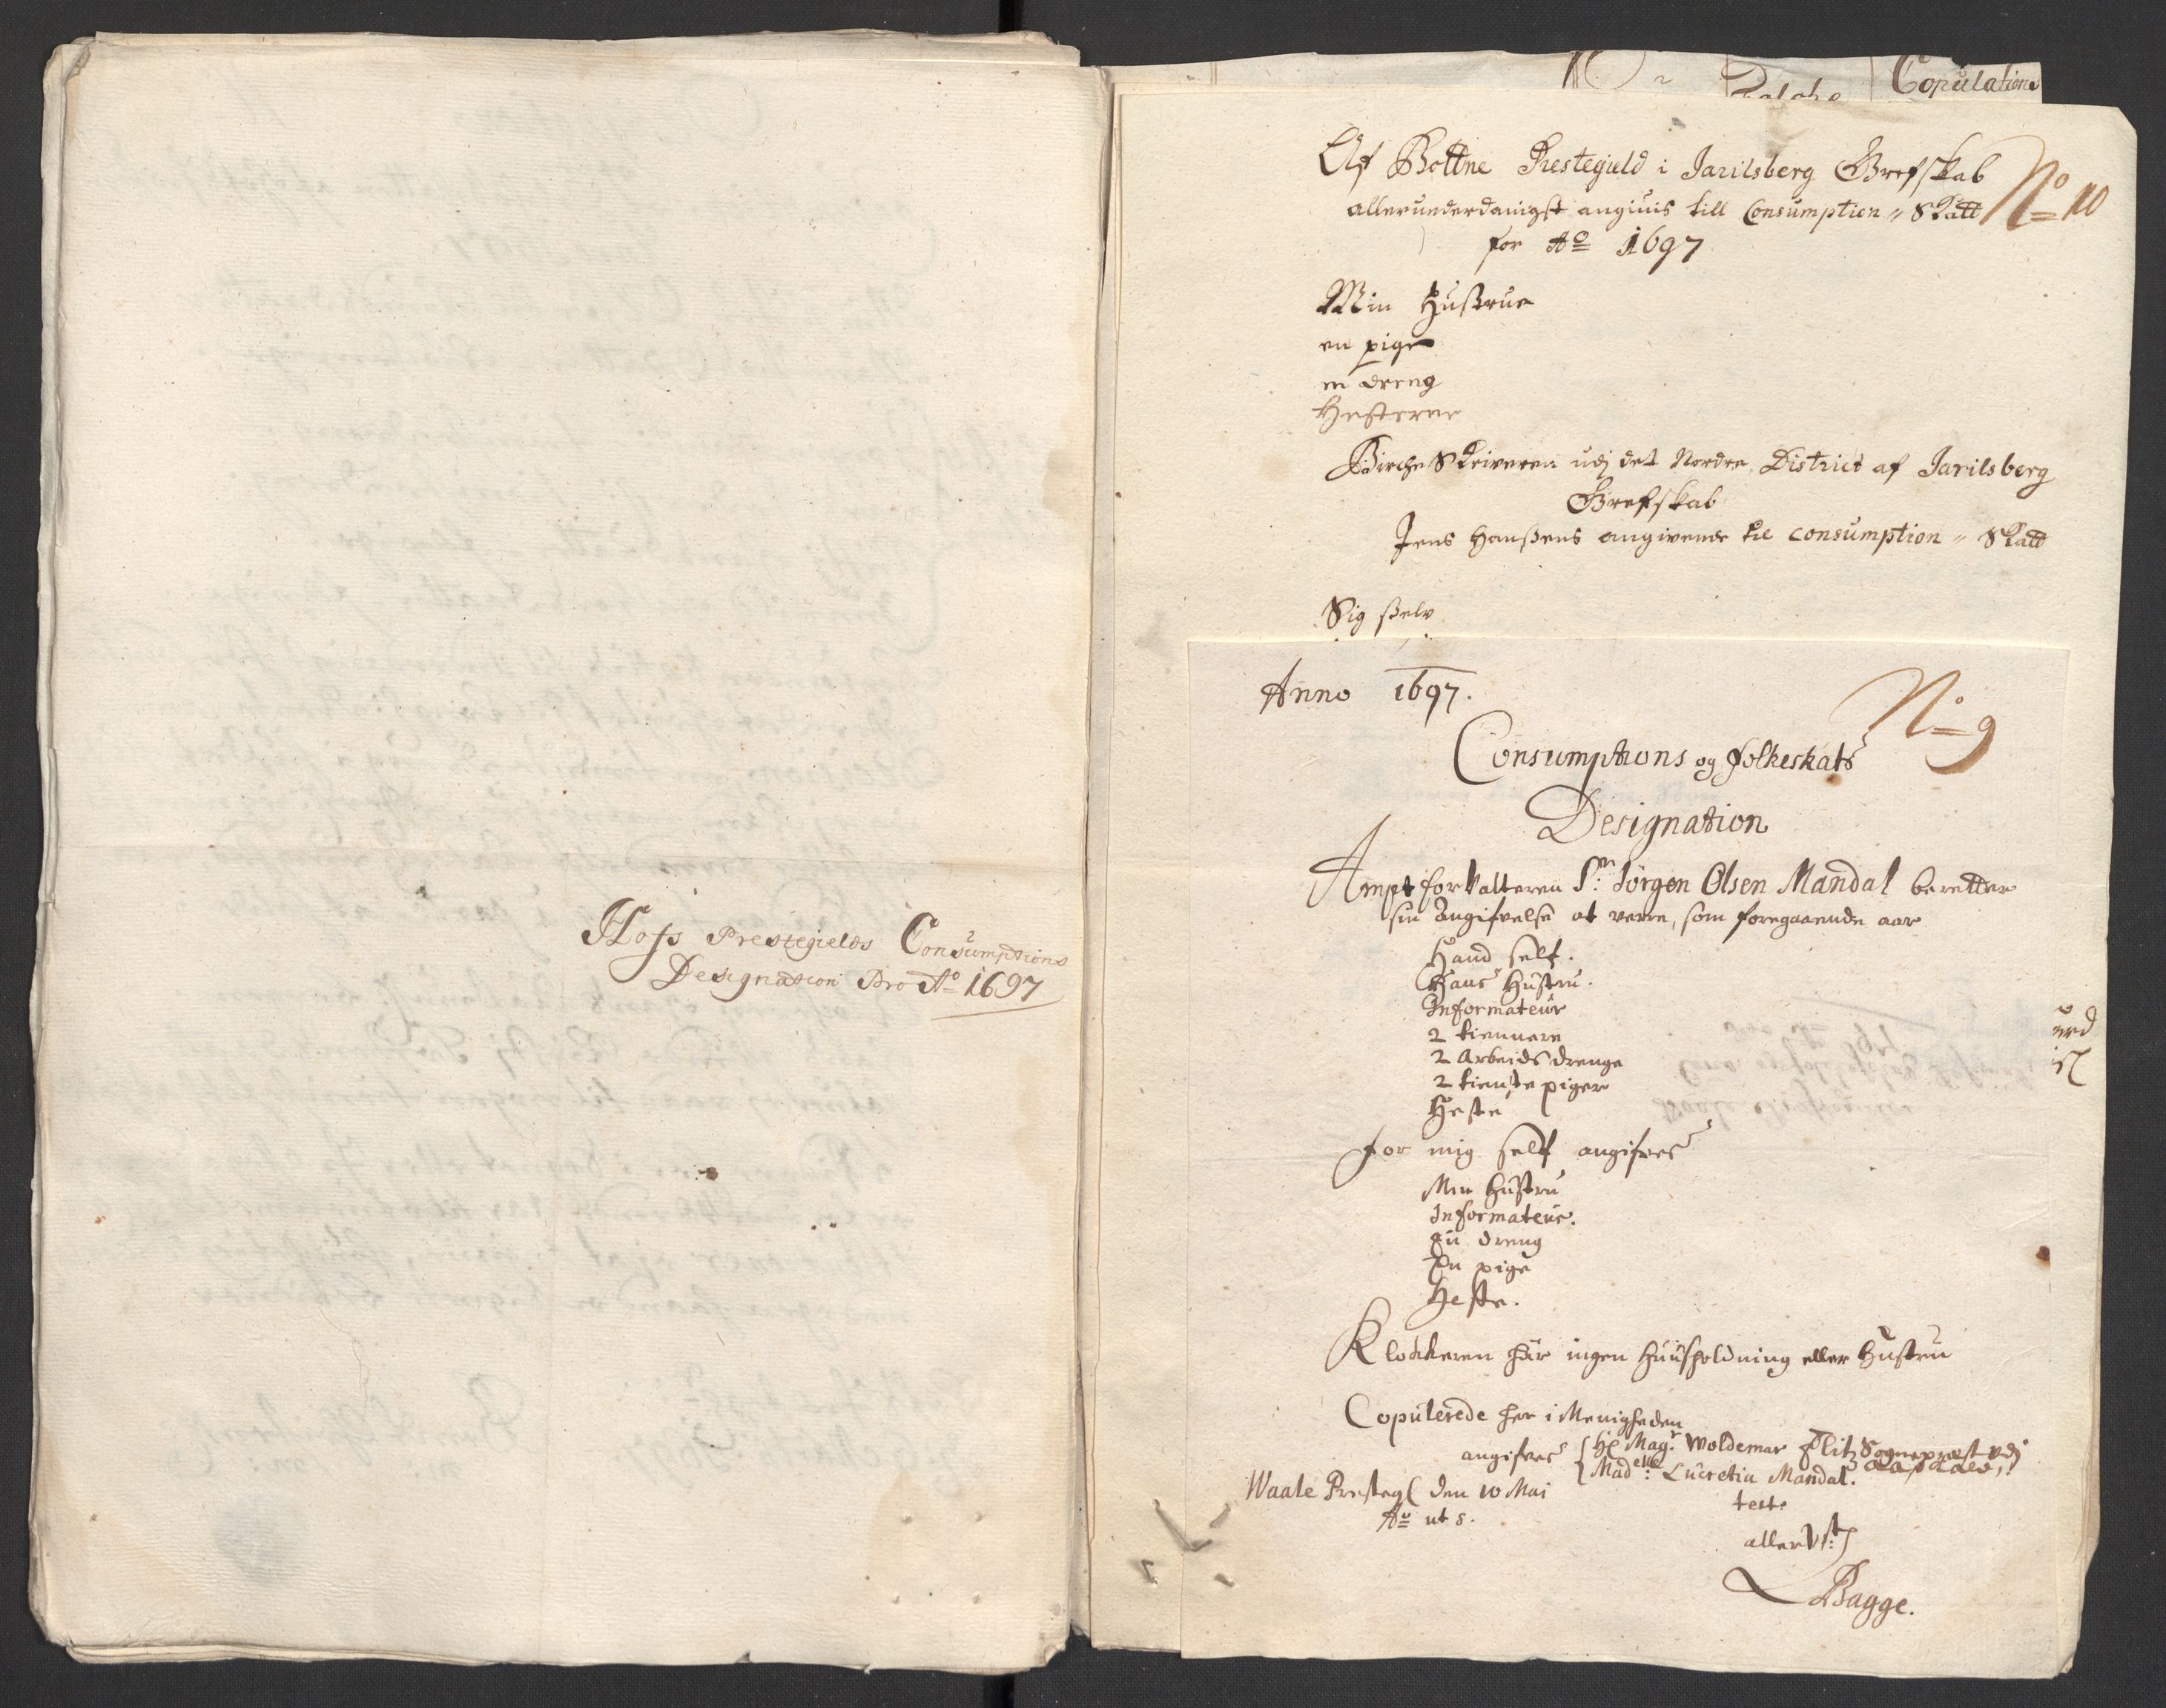 Hofs Prestegields Consumptions
Designation Pro Ao 1697
Copulations
Af Bottne Prestegield i Jarilsberg Grefskab
No 10
allerunderdanigst angivis till Consumption = Skatt
for Ao 1697
Min Hußtrue
en pige
en dreng
Hesterne
Birche Skriveren udj det Nordre District af Jarilsberg
Grefskab
Jens Hanßens angivende til Consumption = Skatt
Sig ßelv
Anno 1697.
No 9
Consumptions og folkeskats
Designation
Ampt forvalteren Sr: Jörgen Olsen Mandal beretter
sin Angifvelse at verre, som foregaaende aar
Hand self.
Hans Hustru.
Informateur
2 tiennere
2 Arbeids drenge
2 tieniste piger
Heste
for mig self angifves
Min Hustru
Informateur.
En dreng
En pige
Heste.
Klockeren har ingen Huusholdning eller Hustru
Copulerede her i Menigheden
angifves Hr Magr: Woldemar Flitz Sogneprest udj
Madelle: Lucretia Mandal.
Waale Presteg den 10 Mai
test:
Ao ut s.
aller Ust:
Bagge.